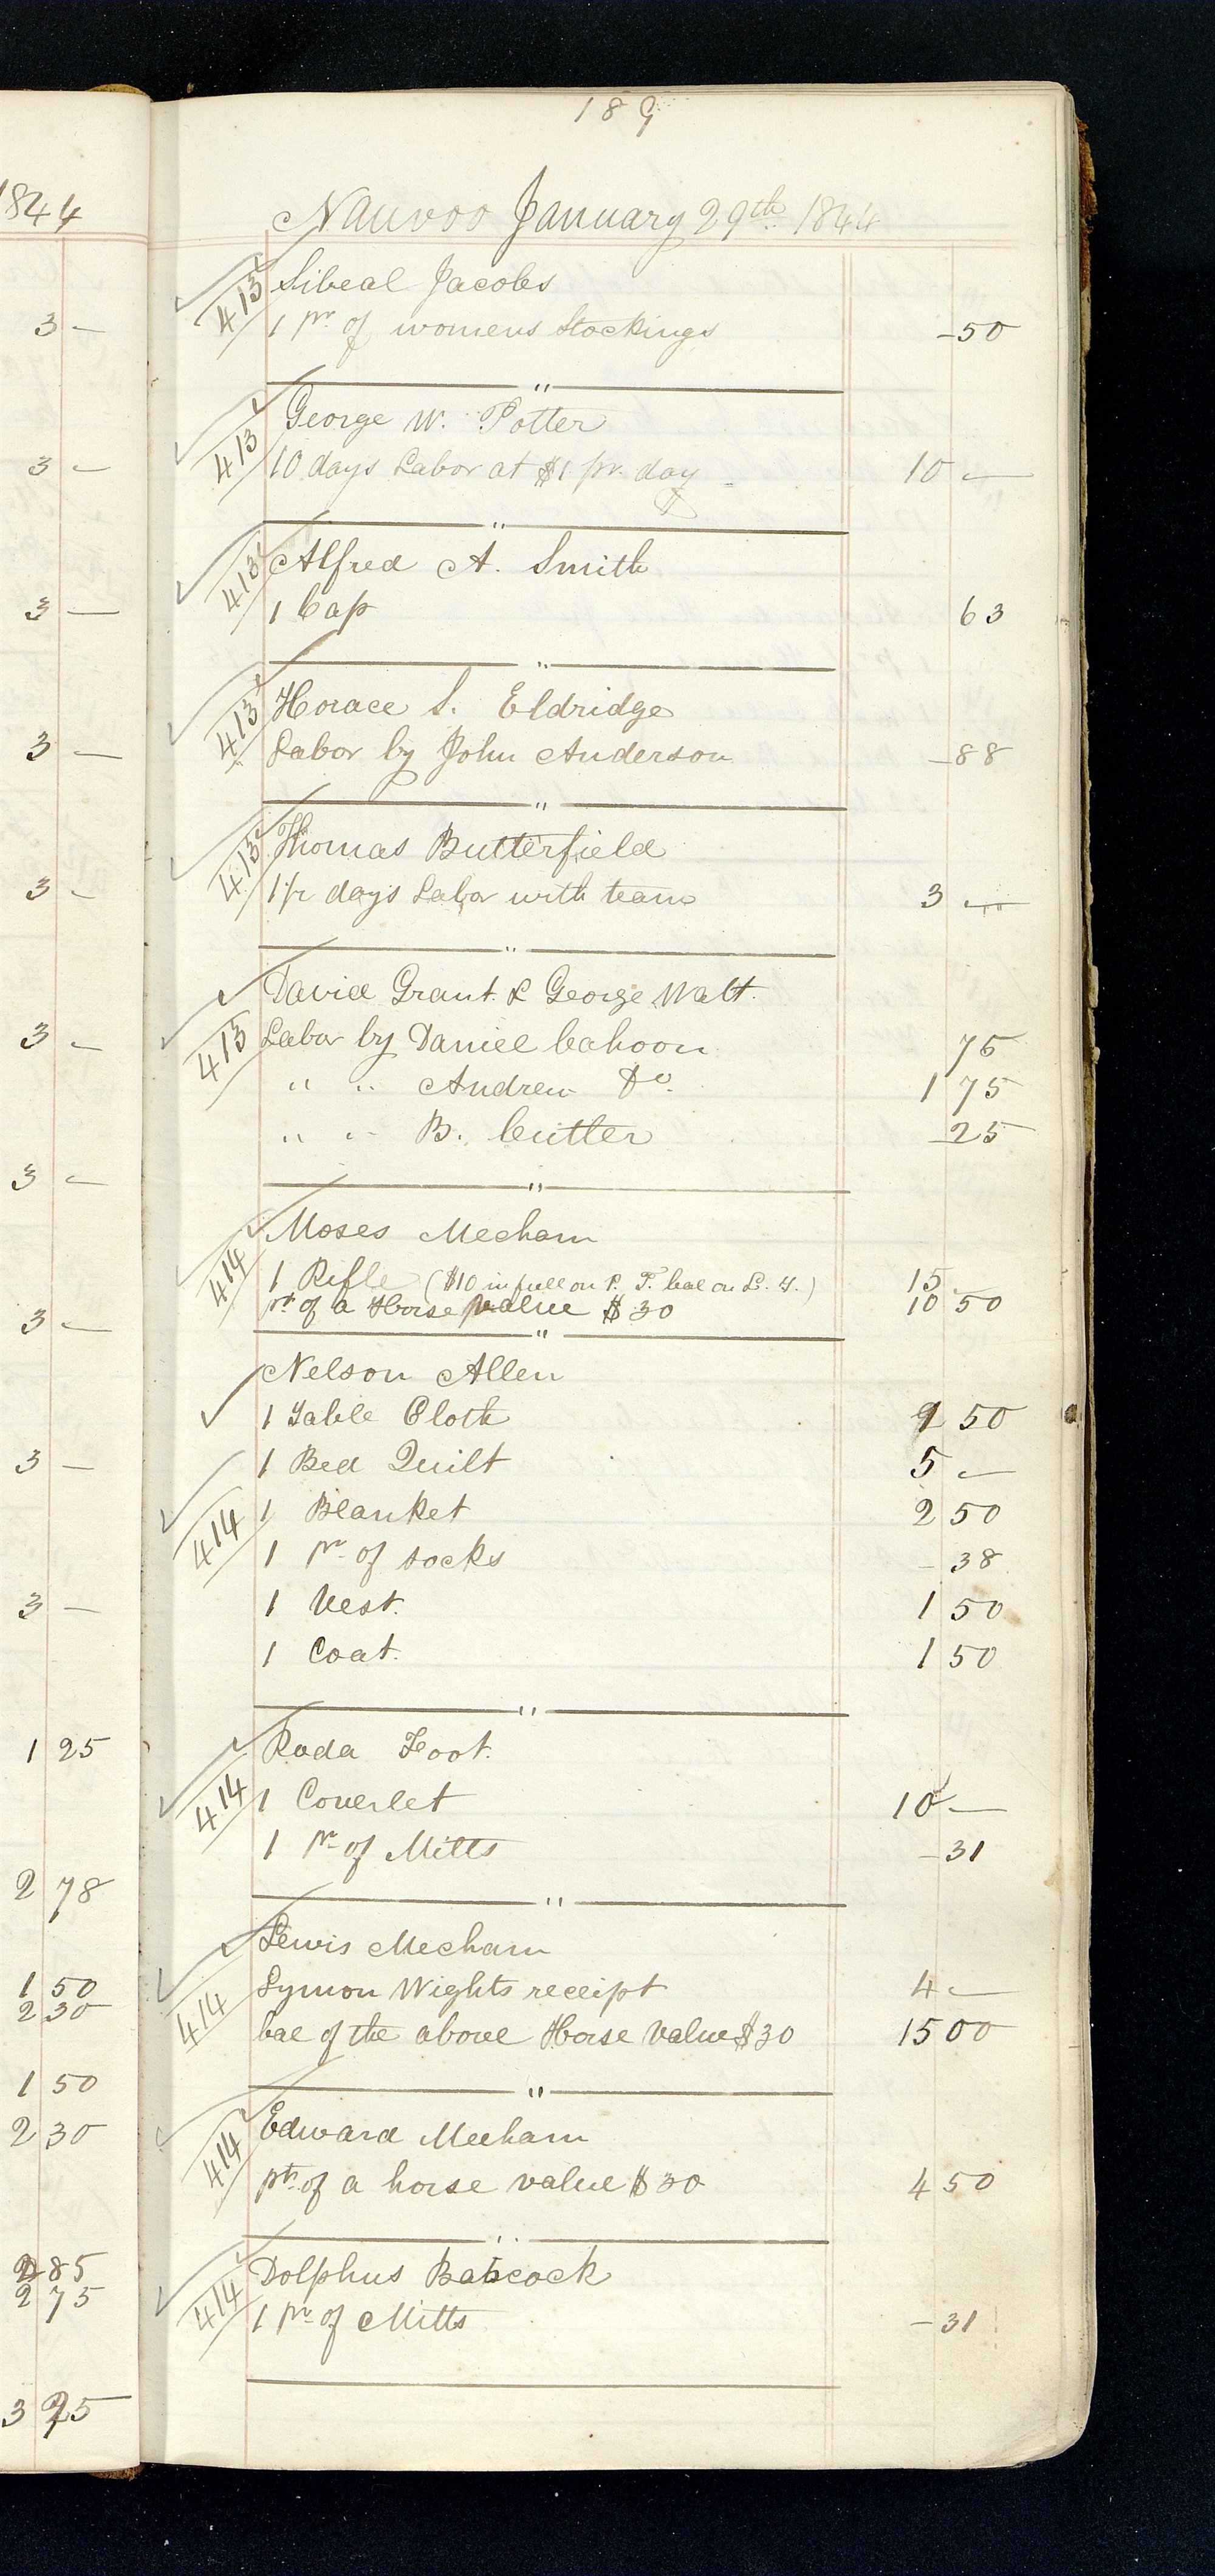 189
1844
Nauvoo January 29th 1844
413 Sibeal Jacobs
3 —
1 pr of womens Stockings -50
"
413 George W. Potter
3 —
10 days Labor at $1 pr. day 10 —
"
413 Alfred A. Smith
3 —
1 Cap 63
"
413 Horace S. Eldridge
3 —
Labor by John Anderson -88
"
413 Thomas Butterfield
3 —
1 1/2 days Labor with team 3 —
"
David Grant & George Watt.
3 —
413 Labor by Daniel Cahoon 75
" " Andrew Do. 1 75
" " B. Cutler -25
3 —
"
414 Moses Mecham
1 Rifle ($10 in full on P. T. bal on L. W.) 15
pt of a Horse value $30 10 50
3 —
"
Nelson Allen
1 Table Cloth 1 50
3 —
1 Bed Quilt 5 —
414 1 Blanket 2 50
1 pr of socks - 38
3 —
1 Vest. 1 50
1 Coat. 1 50
"
1 25
Roda Foot.
414 1 Coverlet 10 —
1 pr of Mitts - 31
2 78
"
Lewis Mecham
1 50
2 30
414 Lymon Wights receipt 4 —
bal of the above Horse value $30 15 00
1 50
"
2 30
414 Edward Mecham
pt of a horse value $30 4 50
"
2 85
2 75
414 Dolphus Babcock
1 pr of Mitts - 31
3 25